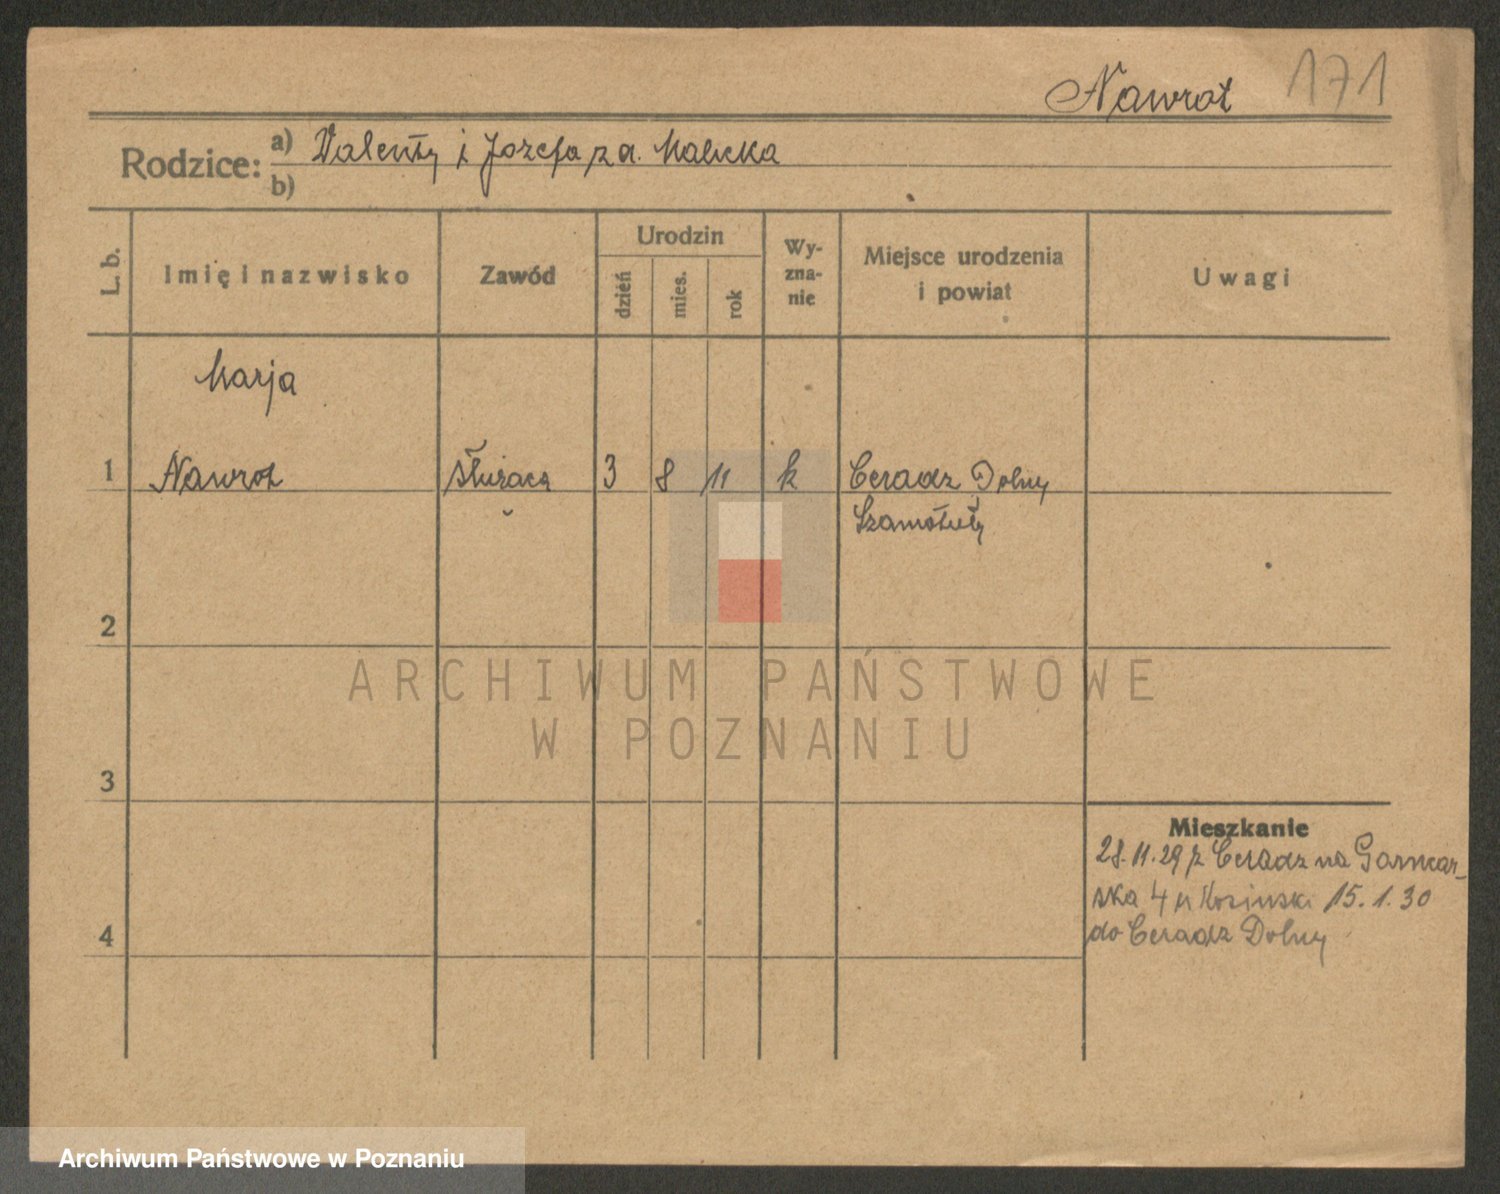 Nawrot 171
Rodzice: a) Walenty i Jozefa z d. Malicka
b)
L. b.
Imię i nazwisko
Zawód
Urodzin
dzień
mies.
rok
Wy-
zna-
nie
Miejsce urodzenia
i powiat
Uwagi
Marja
1 Nawrot służąca 3 8 11 k Ceradz Dolny
Szamotuły
2
ARCHIWUM PAŃSTWOWE
W POZNANIU
3
Mieszkanie
28.11.29 z Ceradz na Garncar-
ska 4 Kosinski 15.1.30
4
do Ceradz Dolny
Archiwum Państwowe w Poznaniu